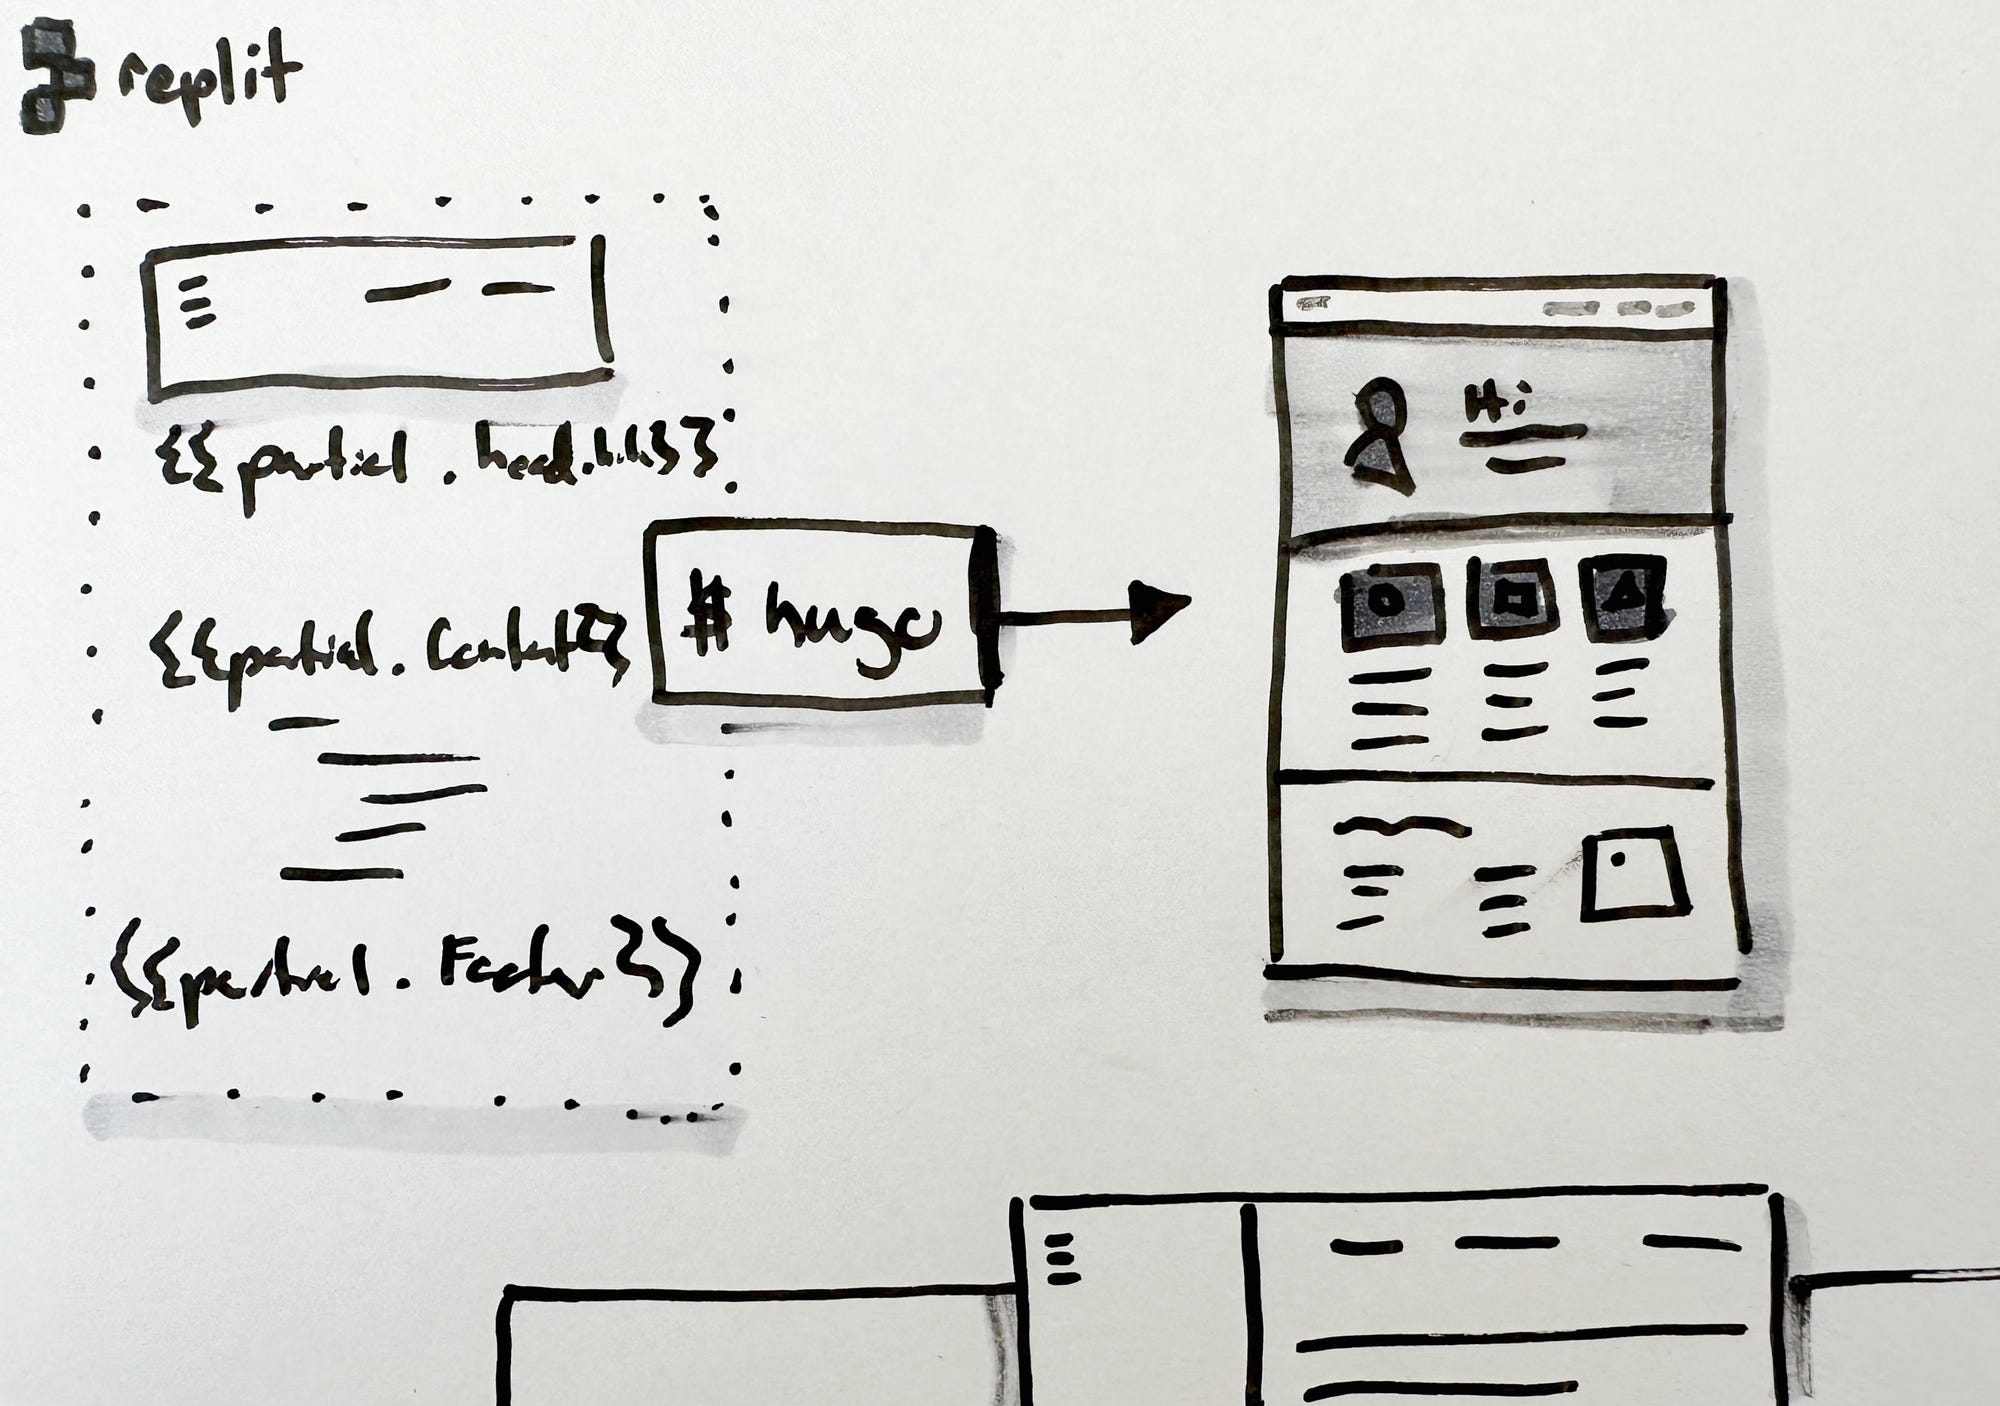 replit
{{ partial . head.html}}
{{partial. Content}}
# hugo
{{partial . Footer}}
Hi